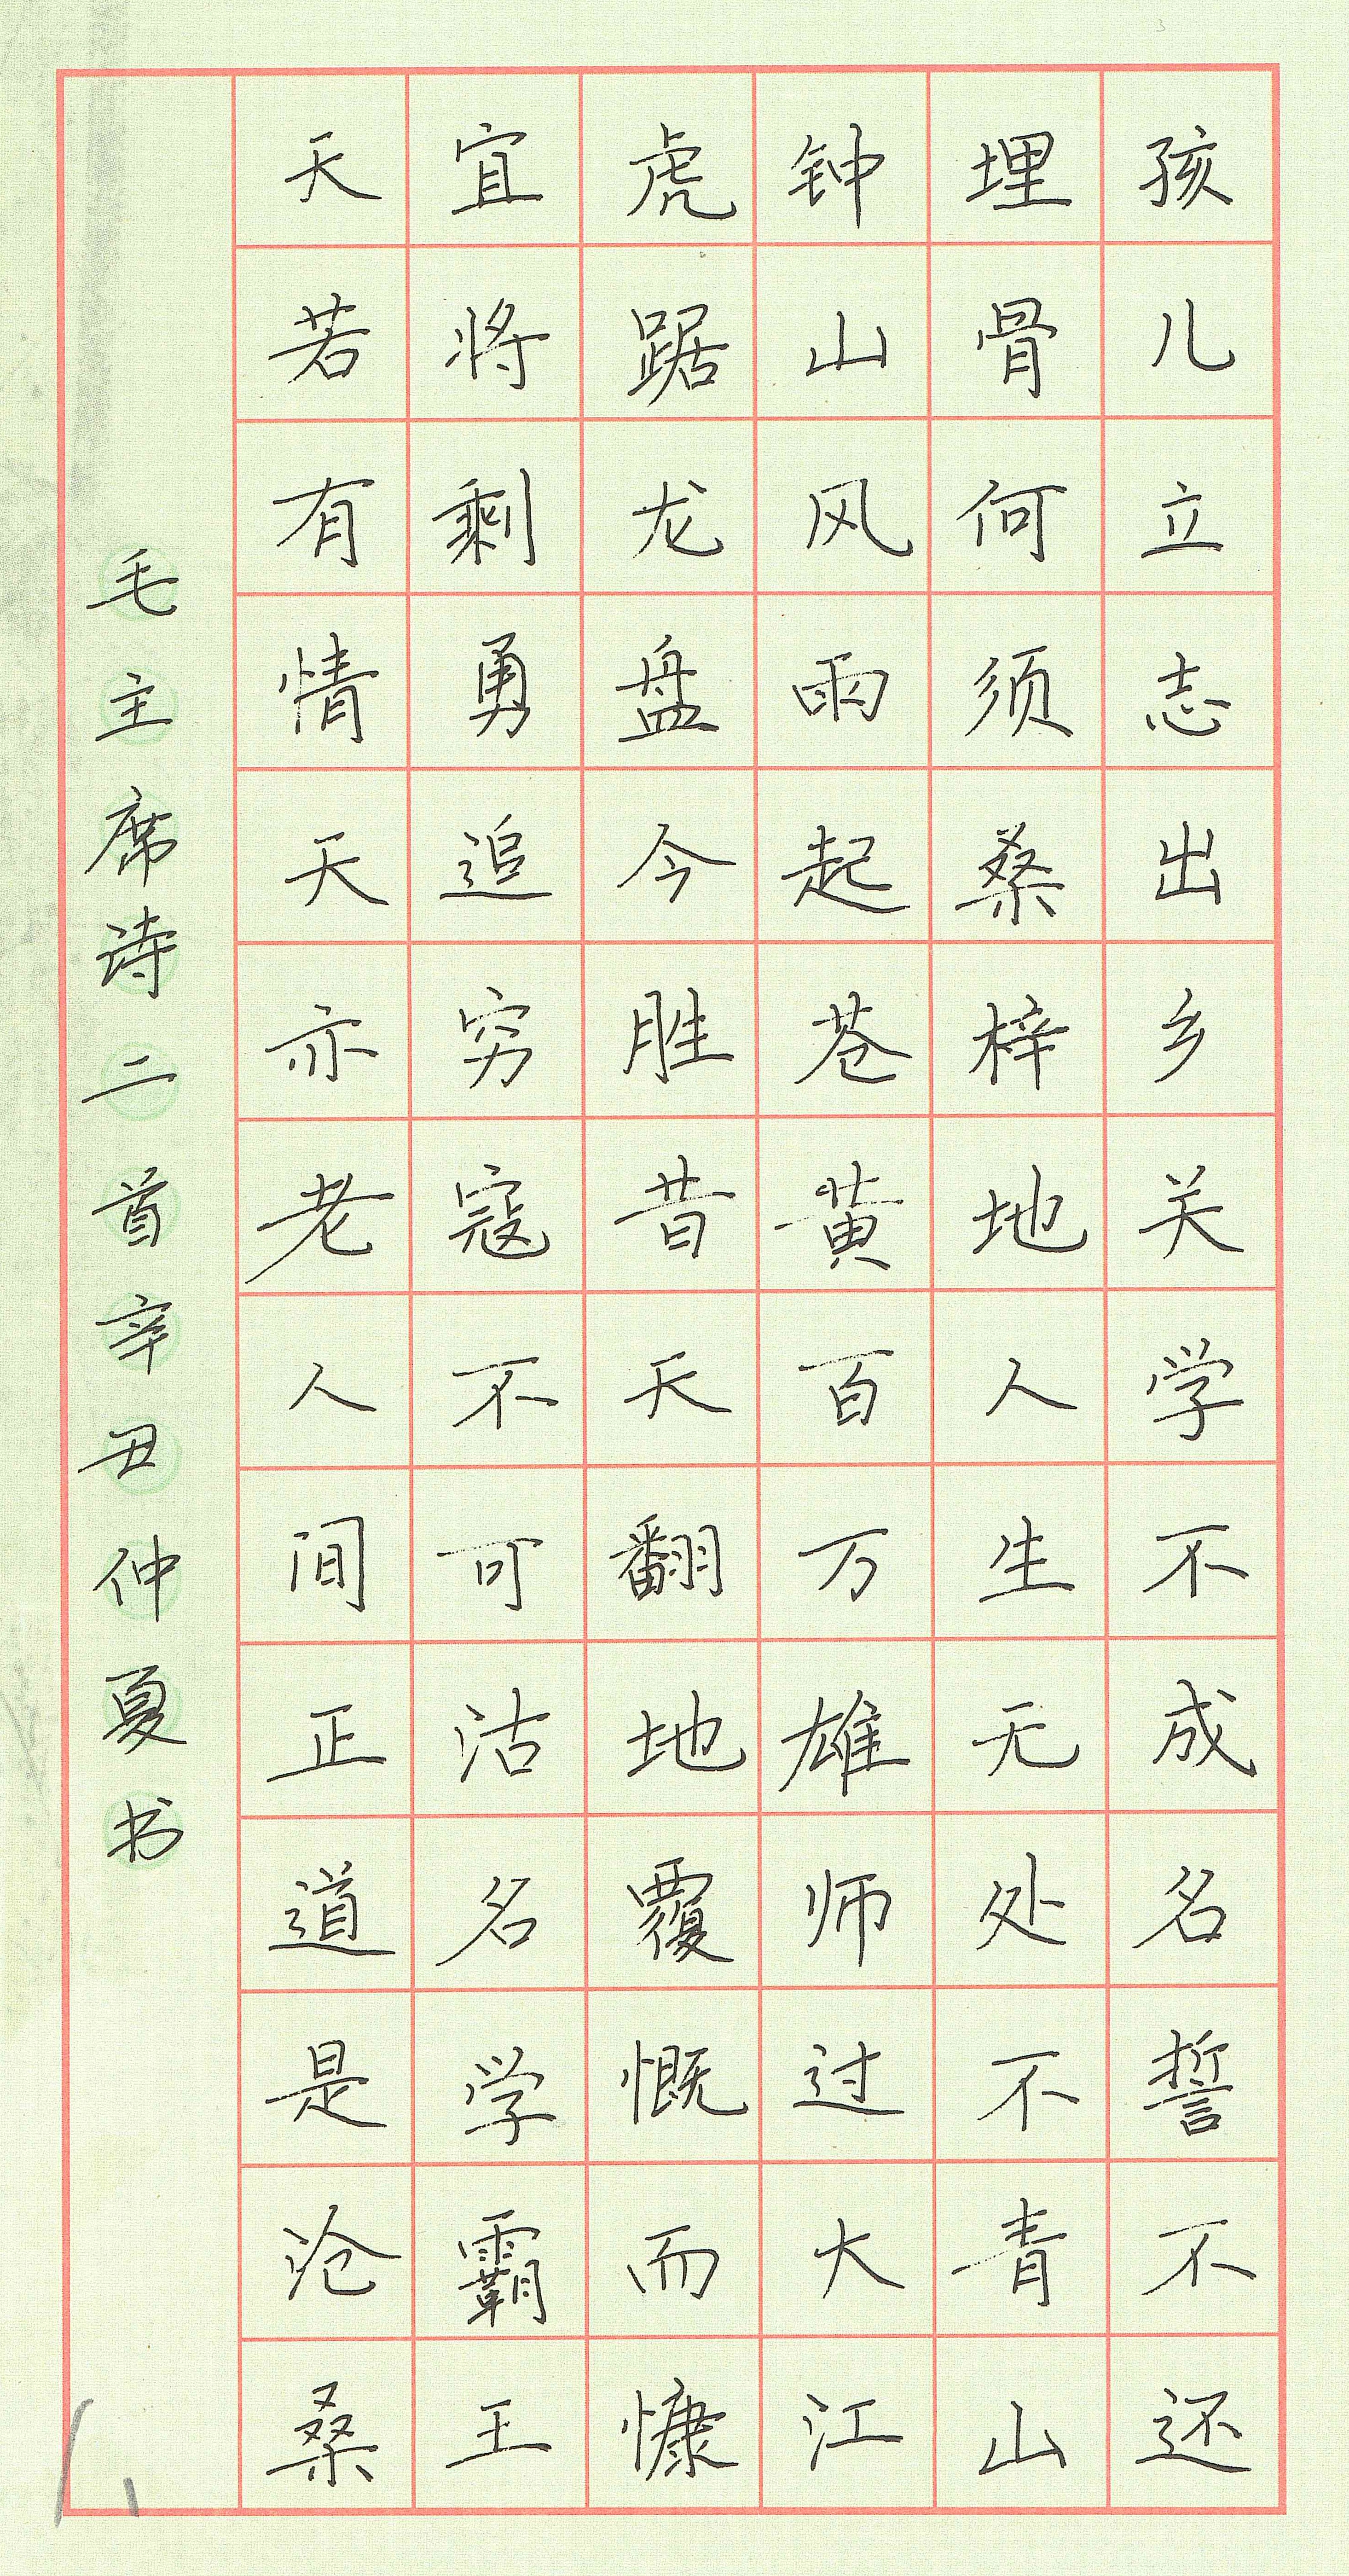 孩儿立志出乡关学不成名誓不还
埋骨何须桑梓地人生无处不青山
钟山风雨起苍黄百万雄师过大江
虎踞龙盘今胜昔天翻地覆慨而慷
宜将剩勇追穷寇不可沽名学霸王
天若有情天亦老人间正道是沧桑
毛主席诗二首辛丑仲夏书